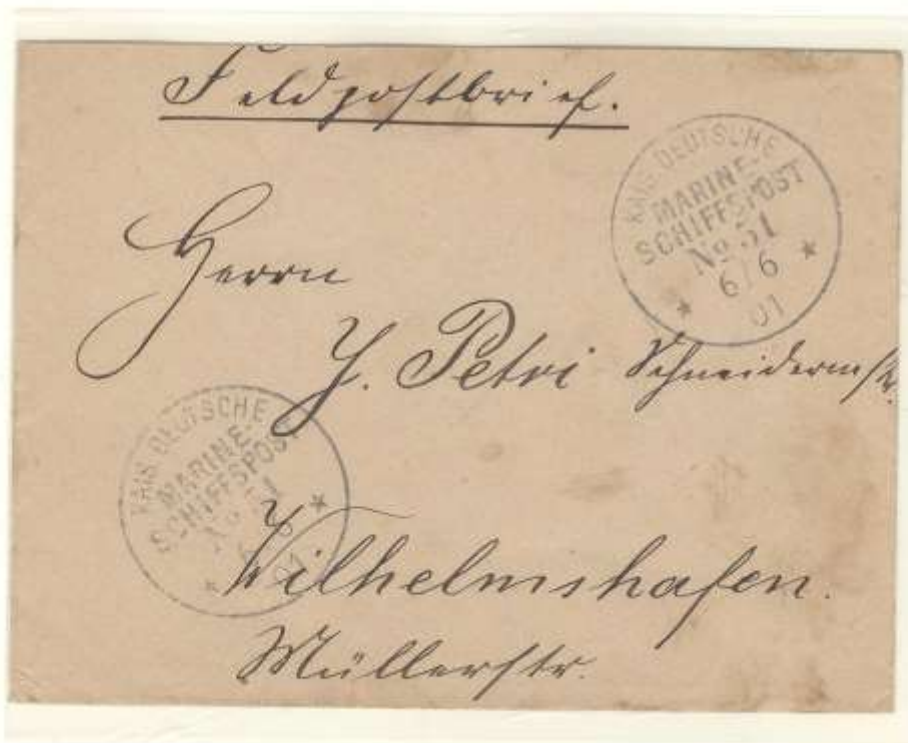 Feldpostbrief.
KAIS. DEUTSCHE
MARINE-
SCHIFFSPOST
No 51
6/6
01
Herrn
J. Petri Schneidermstr.
KAIS. DEUTSCHE
MARINE-
SCHIFFSPOST
No 51
6/6
01
Wilhelmshafen.
Müllerstr.